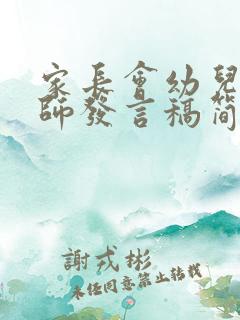 家長會幼兒
師發言稿簡
謝戎彬
未任同意禁止转载